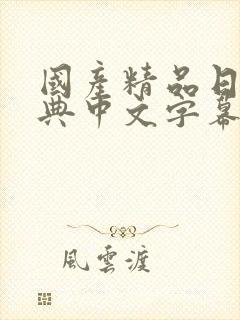 國產精品日
典中文字幕
風雲渡